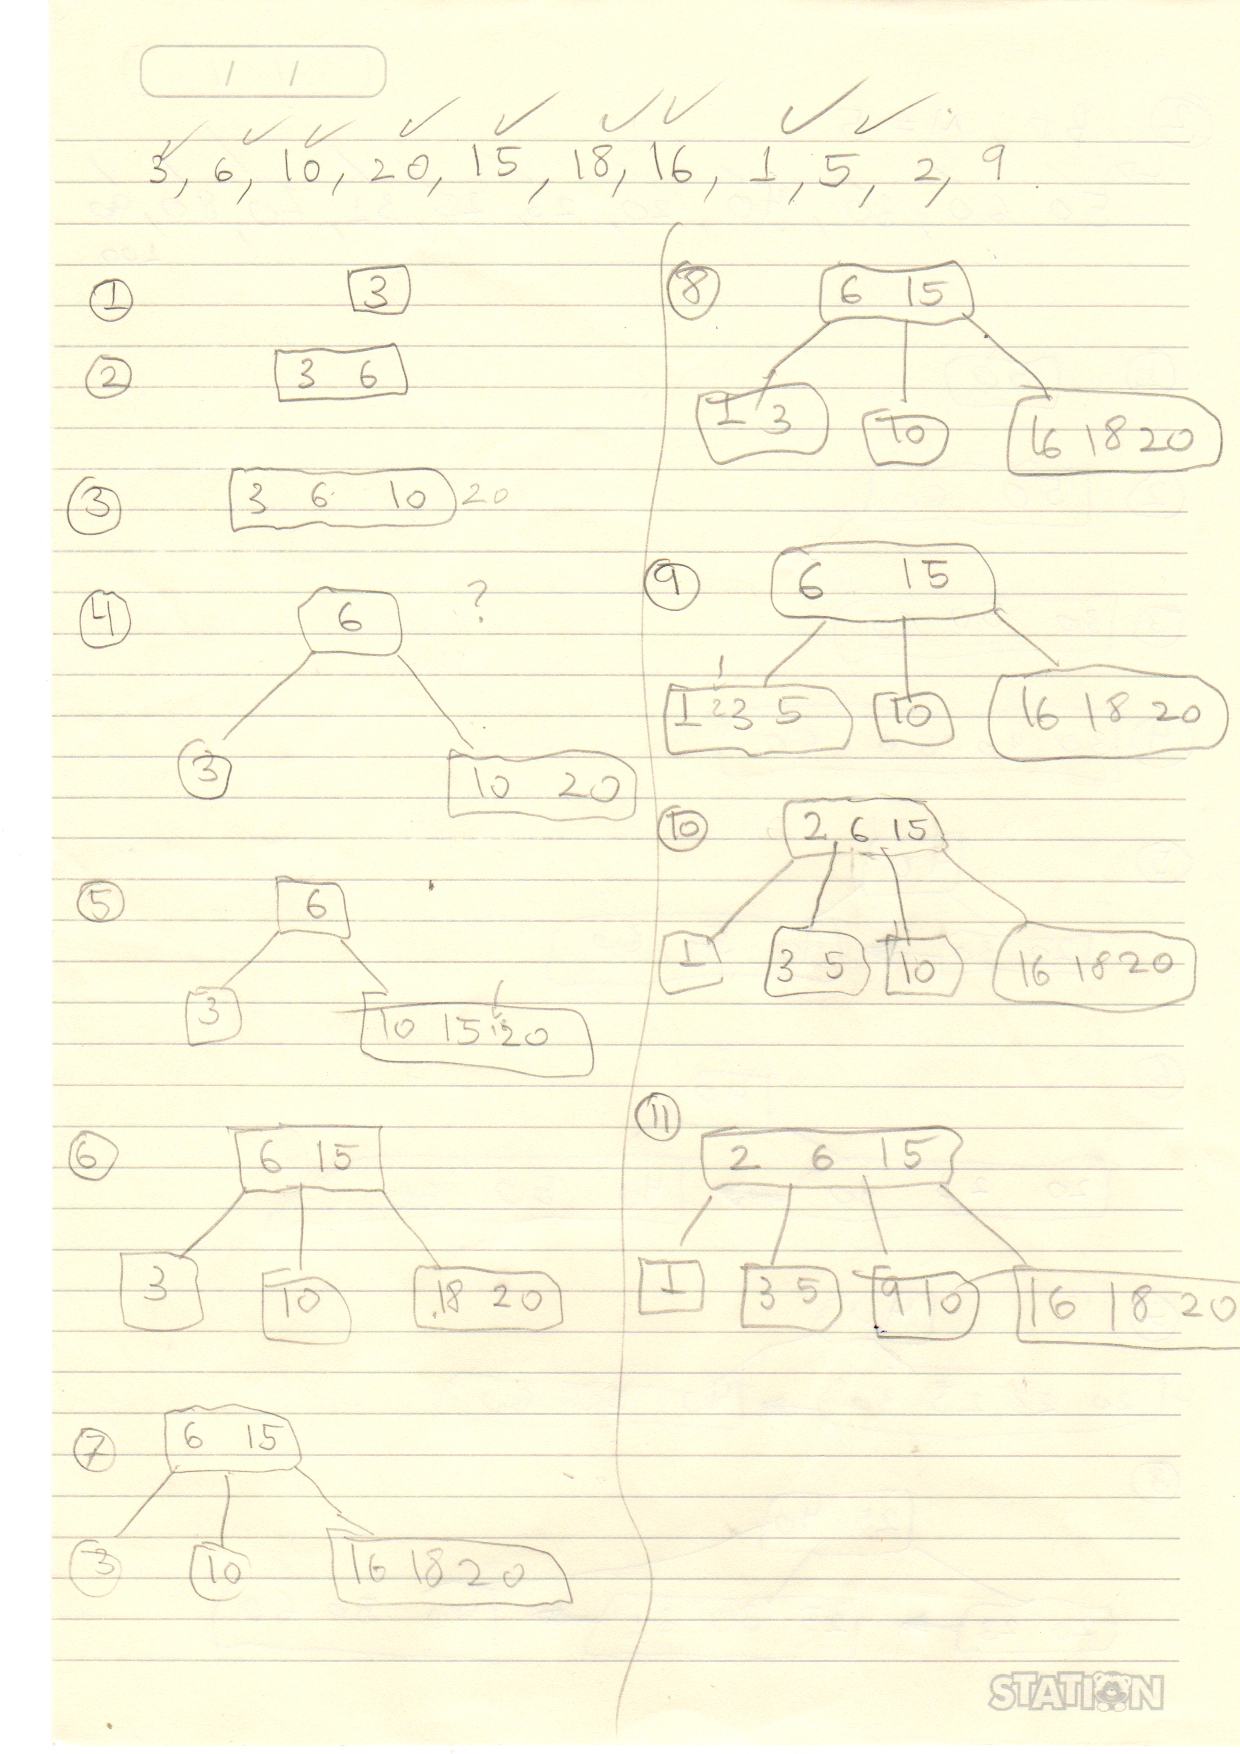 / /
3, 6, 10, 20, 15, 18, 16, 1, 5, 2, 9
① 3
② 3 6
③ 3 6 10 20
④ 6 ?
3 10 20
⑤ 6
3 10 15 18 20
⑥ 6 15
3 10 18 20
⑦ 6 15
3 10 16 18 20
⑧ 6 15
1 3 10 16 18 20
⑨ 6 15
1 2 3 5 10 16 18 20
⑩ 2 6 15
1 3 5 10 16 18 20
⑪ 2 6 15
1 3 5 9 10 16 18 20
STATION